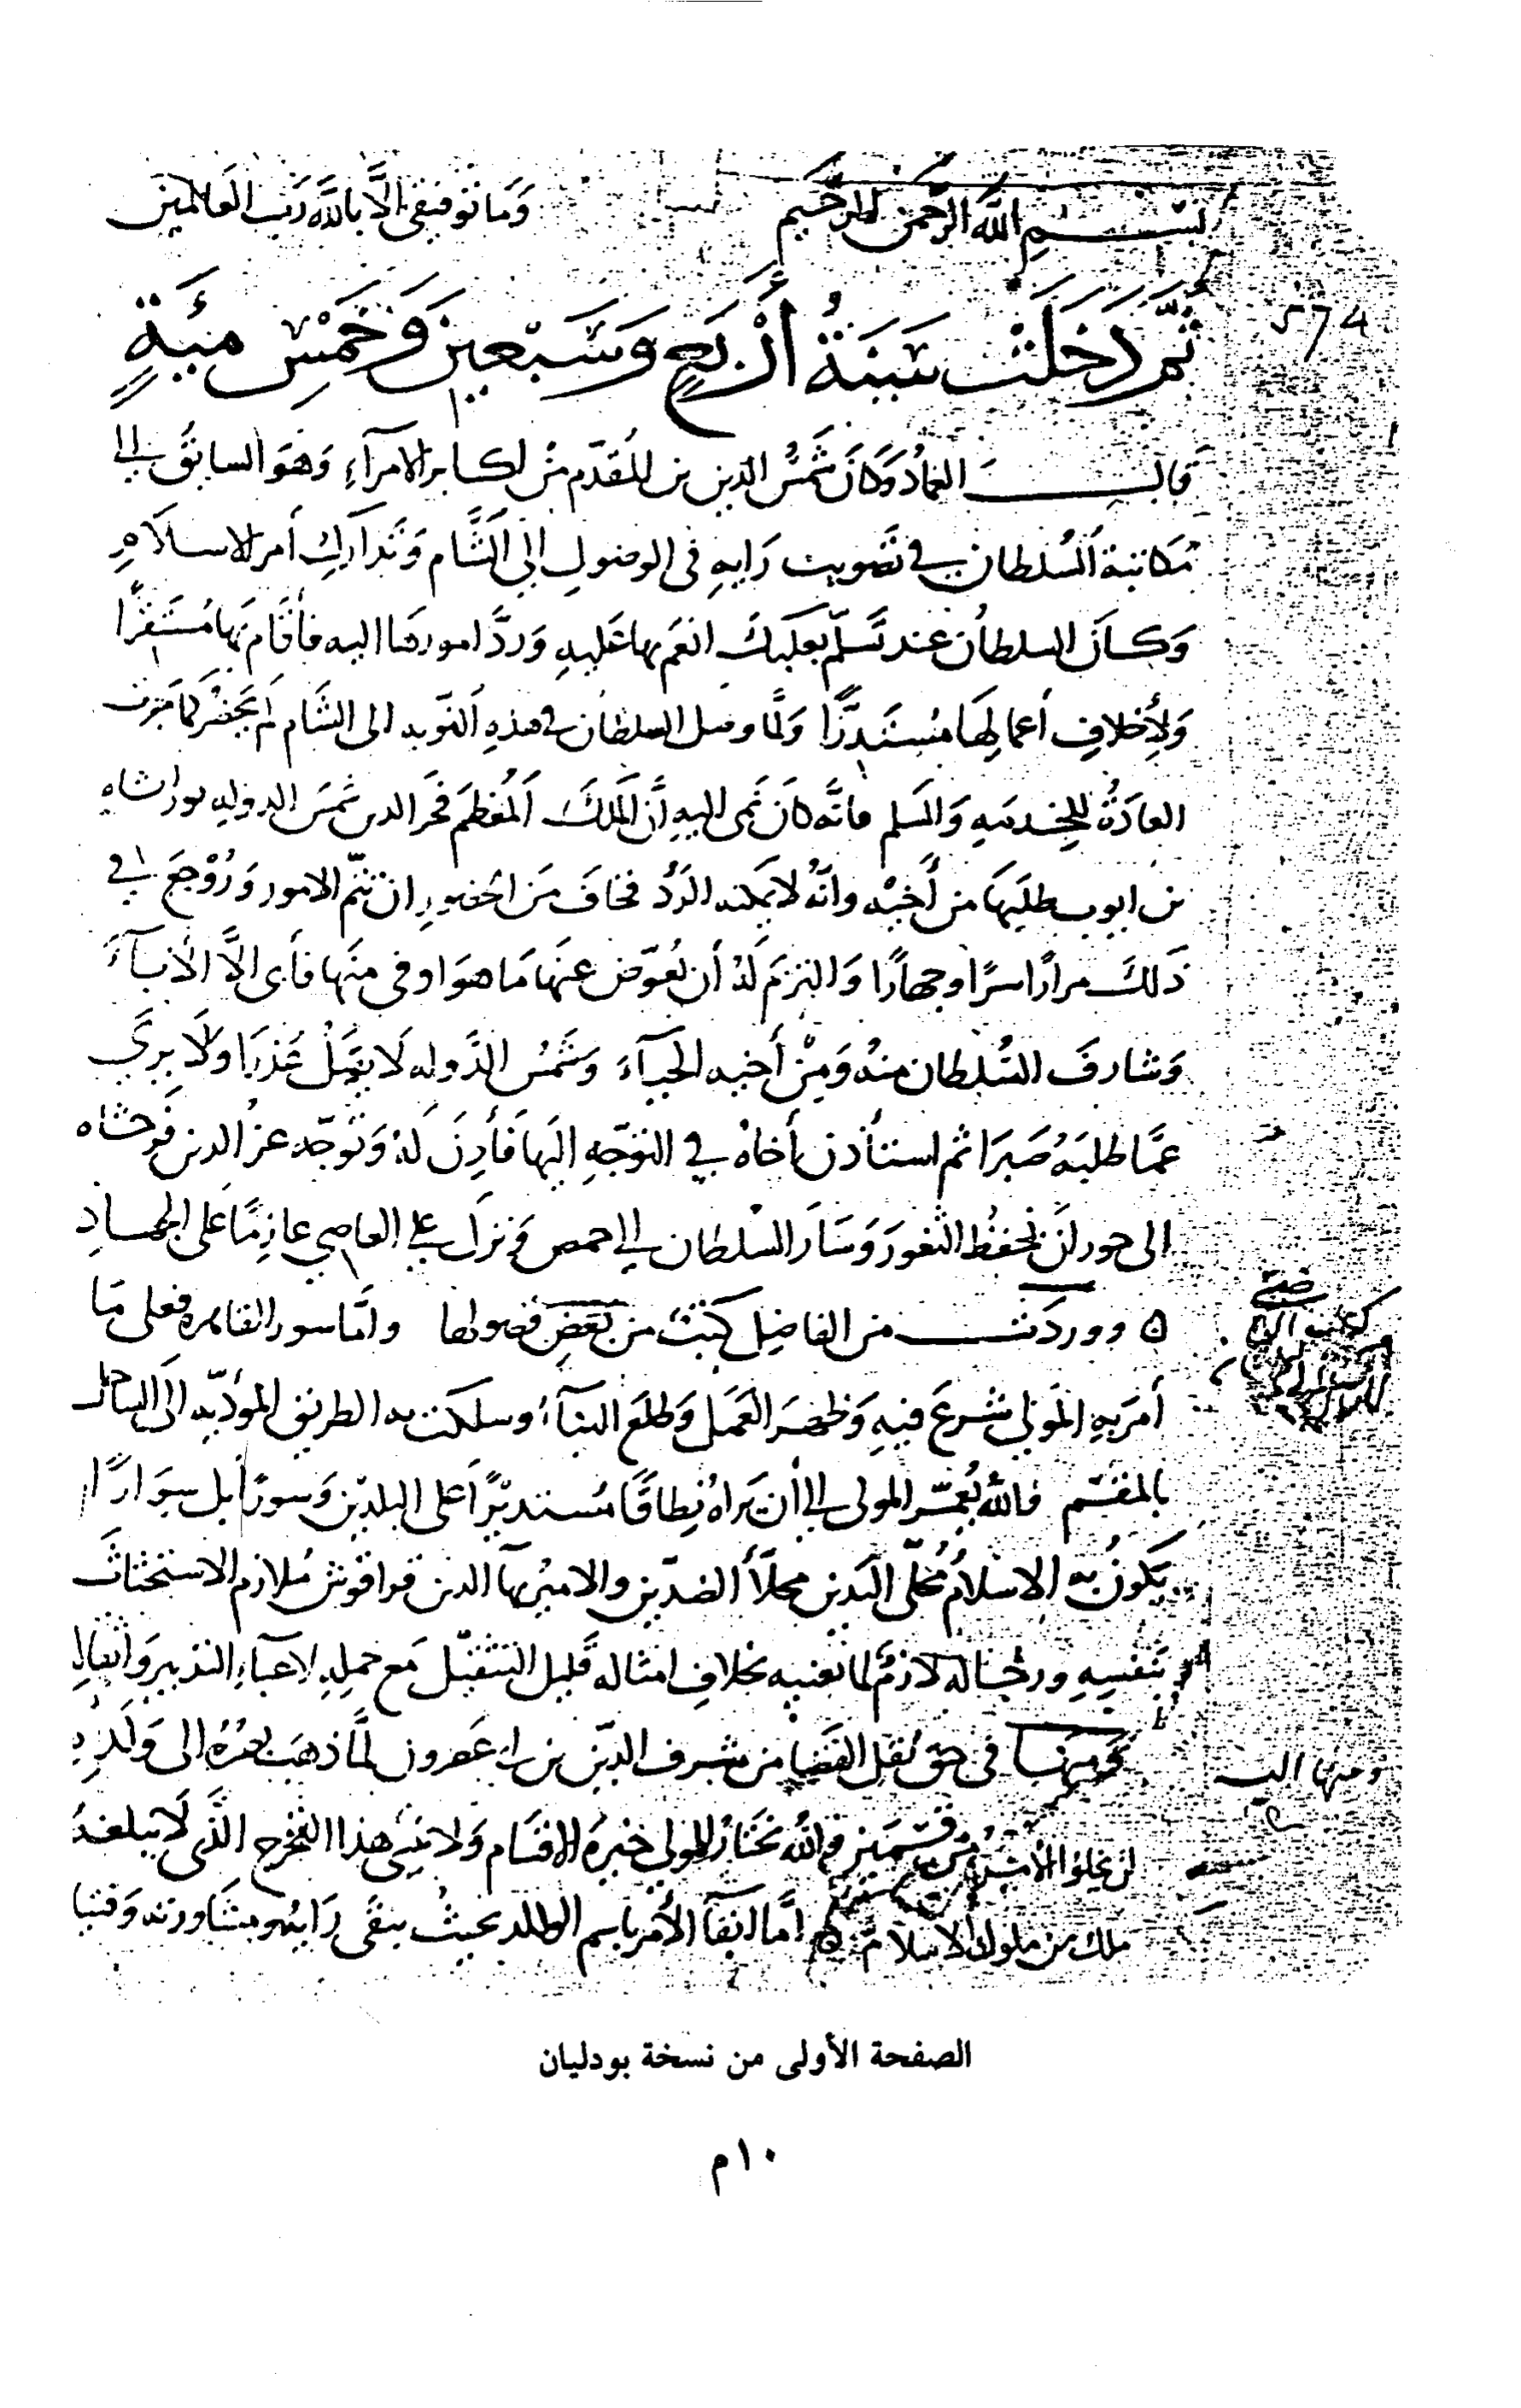 بسم الله الرحمن الرحيم وما توفيقي الا بالله رب العالمين
574
ثُمَّ دَخَلَتْ سَنَةُ أَرْبَعٍ وَسَبْعِينَ وَخَمْسِ مِئَةٍ
قال العماد وكان شمس الدين بن المقدم من اكابر الامرآء وهو السابق الى
مكاتبة السلطان في تصويب رايه في الوصول الى الشام وتدارك أمر الاسلام
وكان السلطان عند تسلم بعلبك انعم بها عليه ورد امورها اليه فأقام بها مستقرًا
ولأخلاف أعمالها مستدرًا ولما وصل السلطان في هذه النوبة الى الشام لم يحضر كما جرت
العادة للخدمه والسلم فانه كان نمى اليه أن الملك المعظم فخر الدين شمس الدوله تورانشاه
بن ايوب طلبها من أخيه وانه لا يمكنه الرد فخاف من الحضور ان تتم الامور وروجع في
ذلك مرارًا سرًا وجهارًا والتزم له أن يعوض عنها ما هو اوفى منها فأبى الا الأبآء
وشارف السلطان منه ومن أخيه الحيآء وشمس الدوله لا يقبل عذرًا ولا يرى
عما طلبه صبرًا ثم استأذن أخاه في التوجه اليها فأذن له وتوجه عز الدين فرخشاه
الى حوران لحفظ الثغور وسار السلطان الى حمص ونزل على العاصي عازمًا على الجهاد
ووردت من الفاضل كتب من بعض فصولها واما سور القاهره فعلى ما
أمر به المولى شرع فيه وظهر العمل وطلع البنآء وسلكت به الطريق المؤديه الى الساحل
بالمقسم فالله يعمر المولى الى أن يراه نطاقًا مستديرًا على البلدين وسورًا بل سوارًا
يكون به الاسلام محلى اليدين محلأ الضدين والامير بهآ الدين قراقوش ملازم الاستحثاث
بنفسه ورجاله لازم لما يعنيه بخلاف امثاله قليل التثقيل مع حمله لاعباء التدبير واثقاله
ومنها في حق نقل القضا من شرف الدين بن ابى عصرون لما ذهب بصره الى ولده
لن يخلو الأمر من قسمين فالله يختار للمولى خيره الاقسام ولا ينسى هذا التحرج الذى لا يبلغه
ملك من ملوك الاسلام اما ابقآ الأمر باسم الوالد بحيث يبقى رايه ومشاورته وفتيا
الصفحة الأولى من نسخة بودليان
١٠م